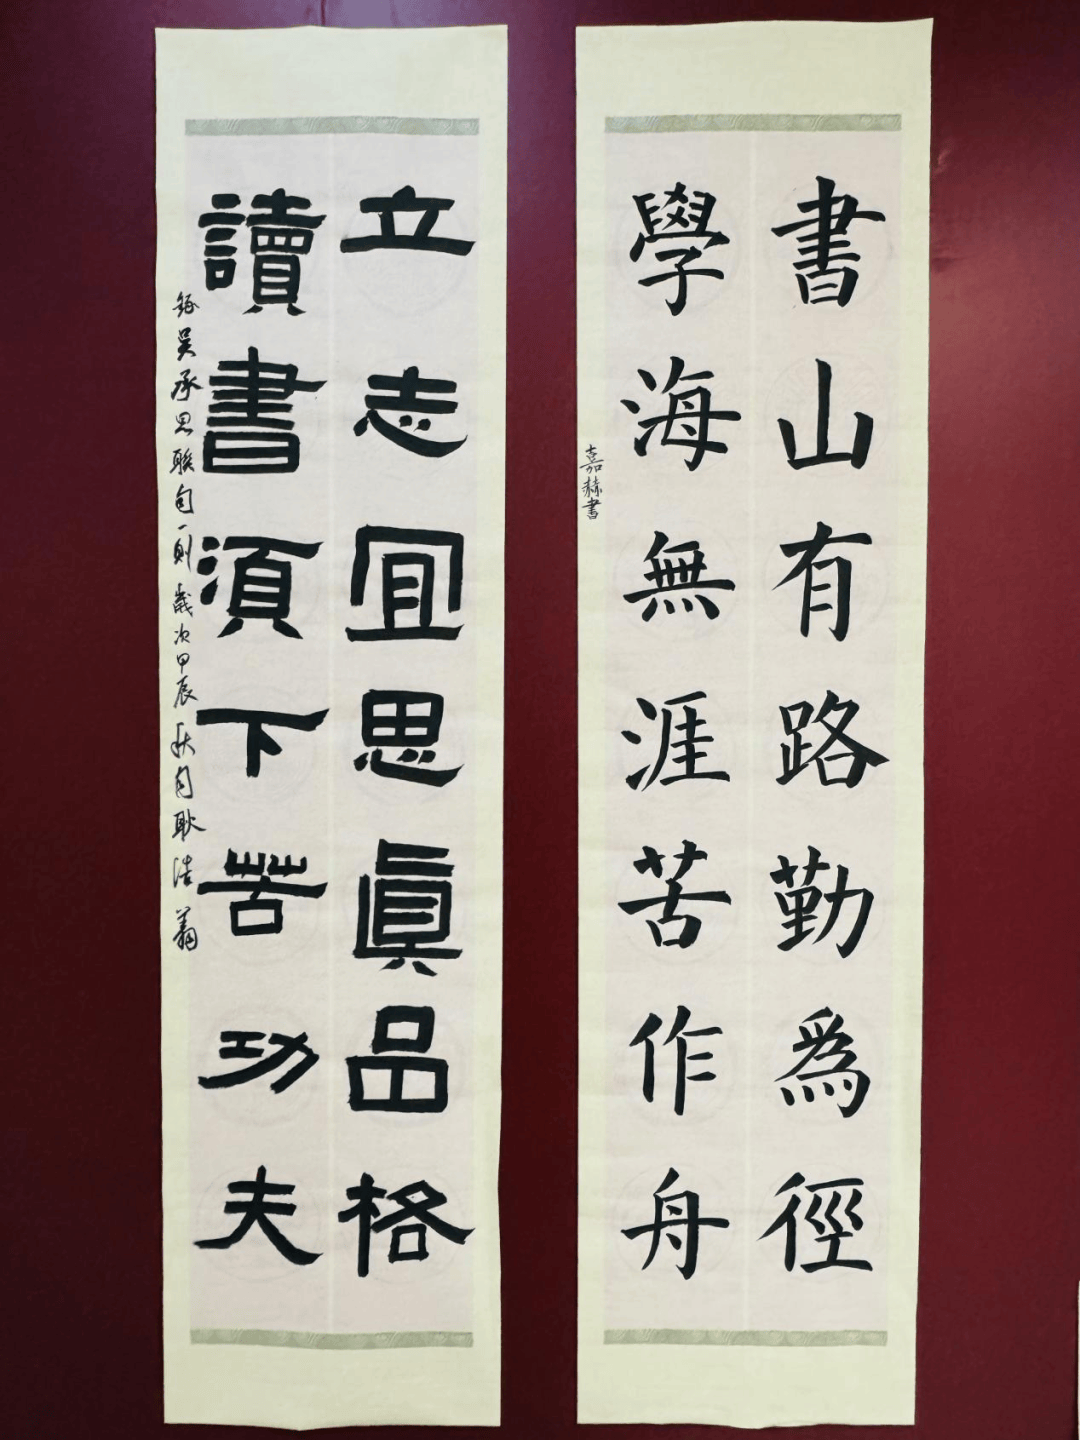 書山有路勤為徑
學海無涯苦作舟
嘉赫書
立志宜思真品格
讀書須下苦功夫
錄吳承恩聯句一則歲次甲辰秋月耿潔